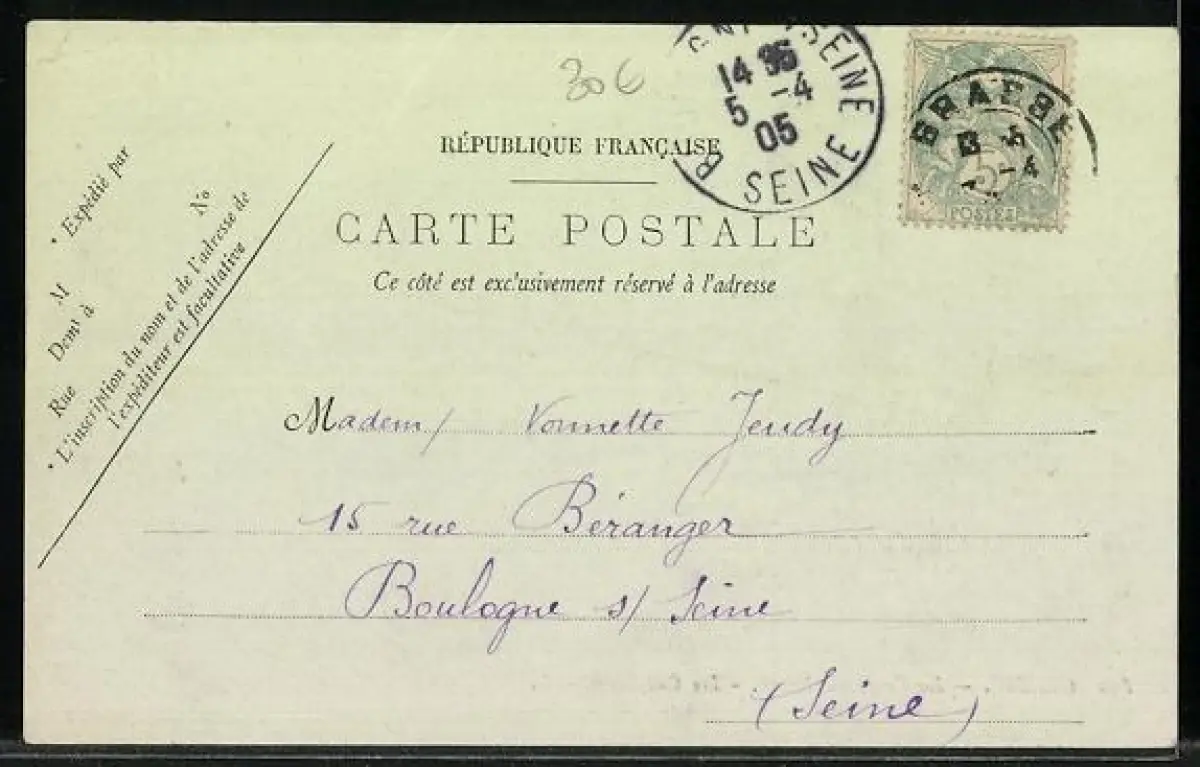 306
RÉPUBLIQUE FRANÇAISE
CARTE POSTALE
Ce côté est exclusivement réservé à l'adresse
* Expédié par
M
Demt à
Rue No
* L'inscription du nom et de l'adresse de
l'expéditeur est facultative
SEINE
14
5 -4
05
SEINE
5
POSTES
-4
Madem/ Vonnette Jeudy
15 rue Béranger
Boulogne s/ Seine
(Seine)